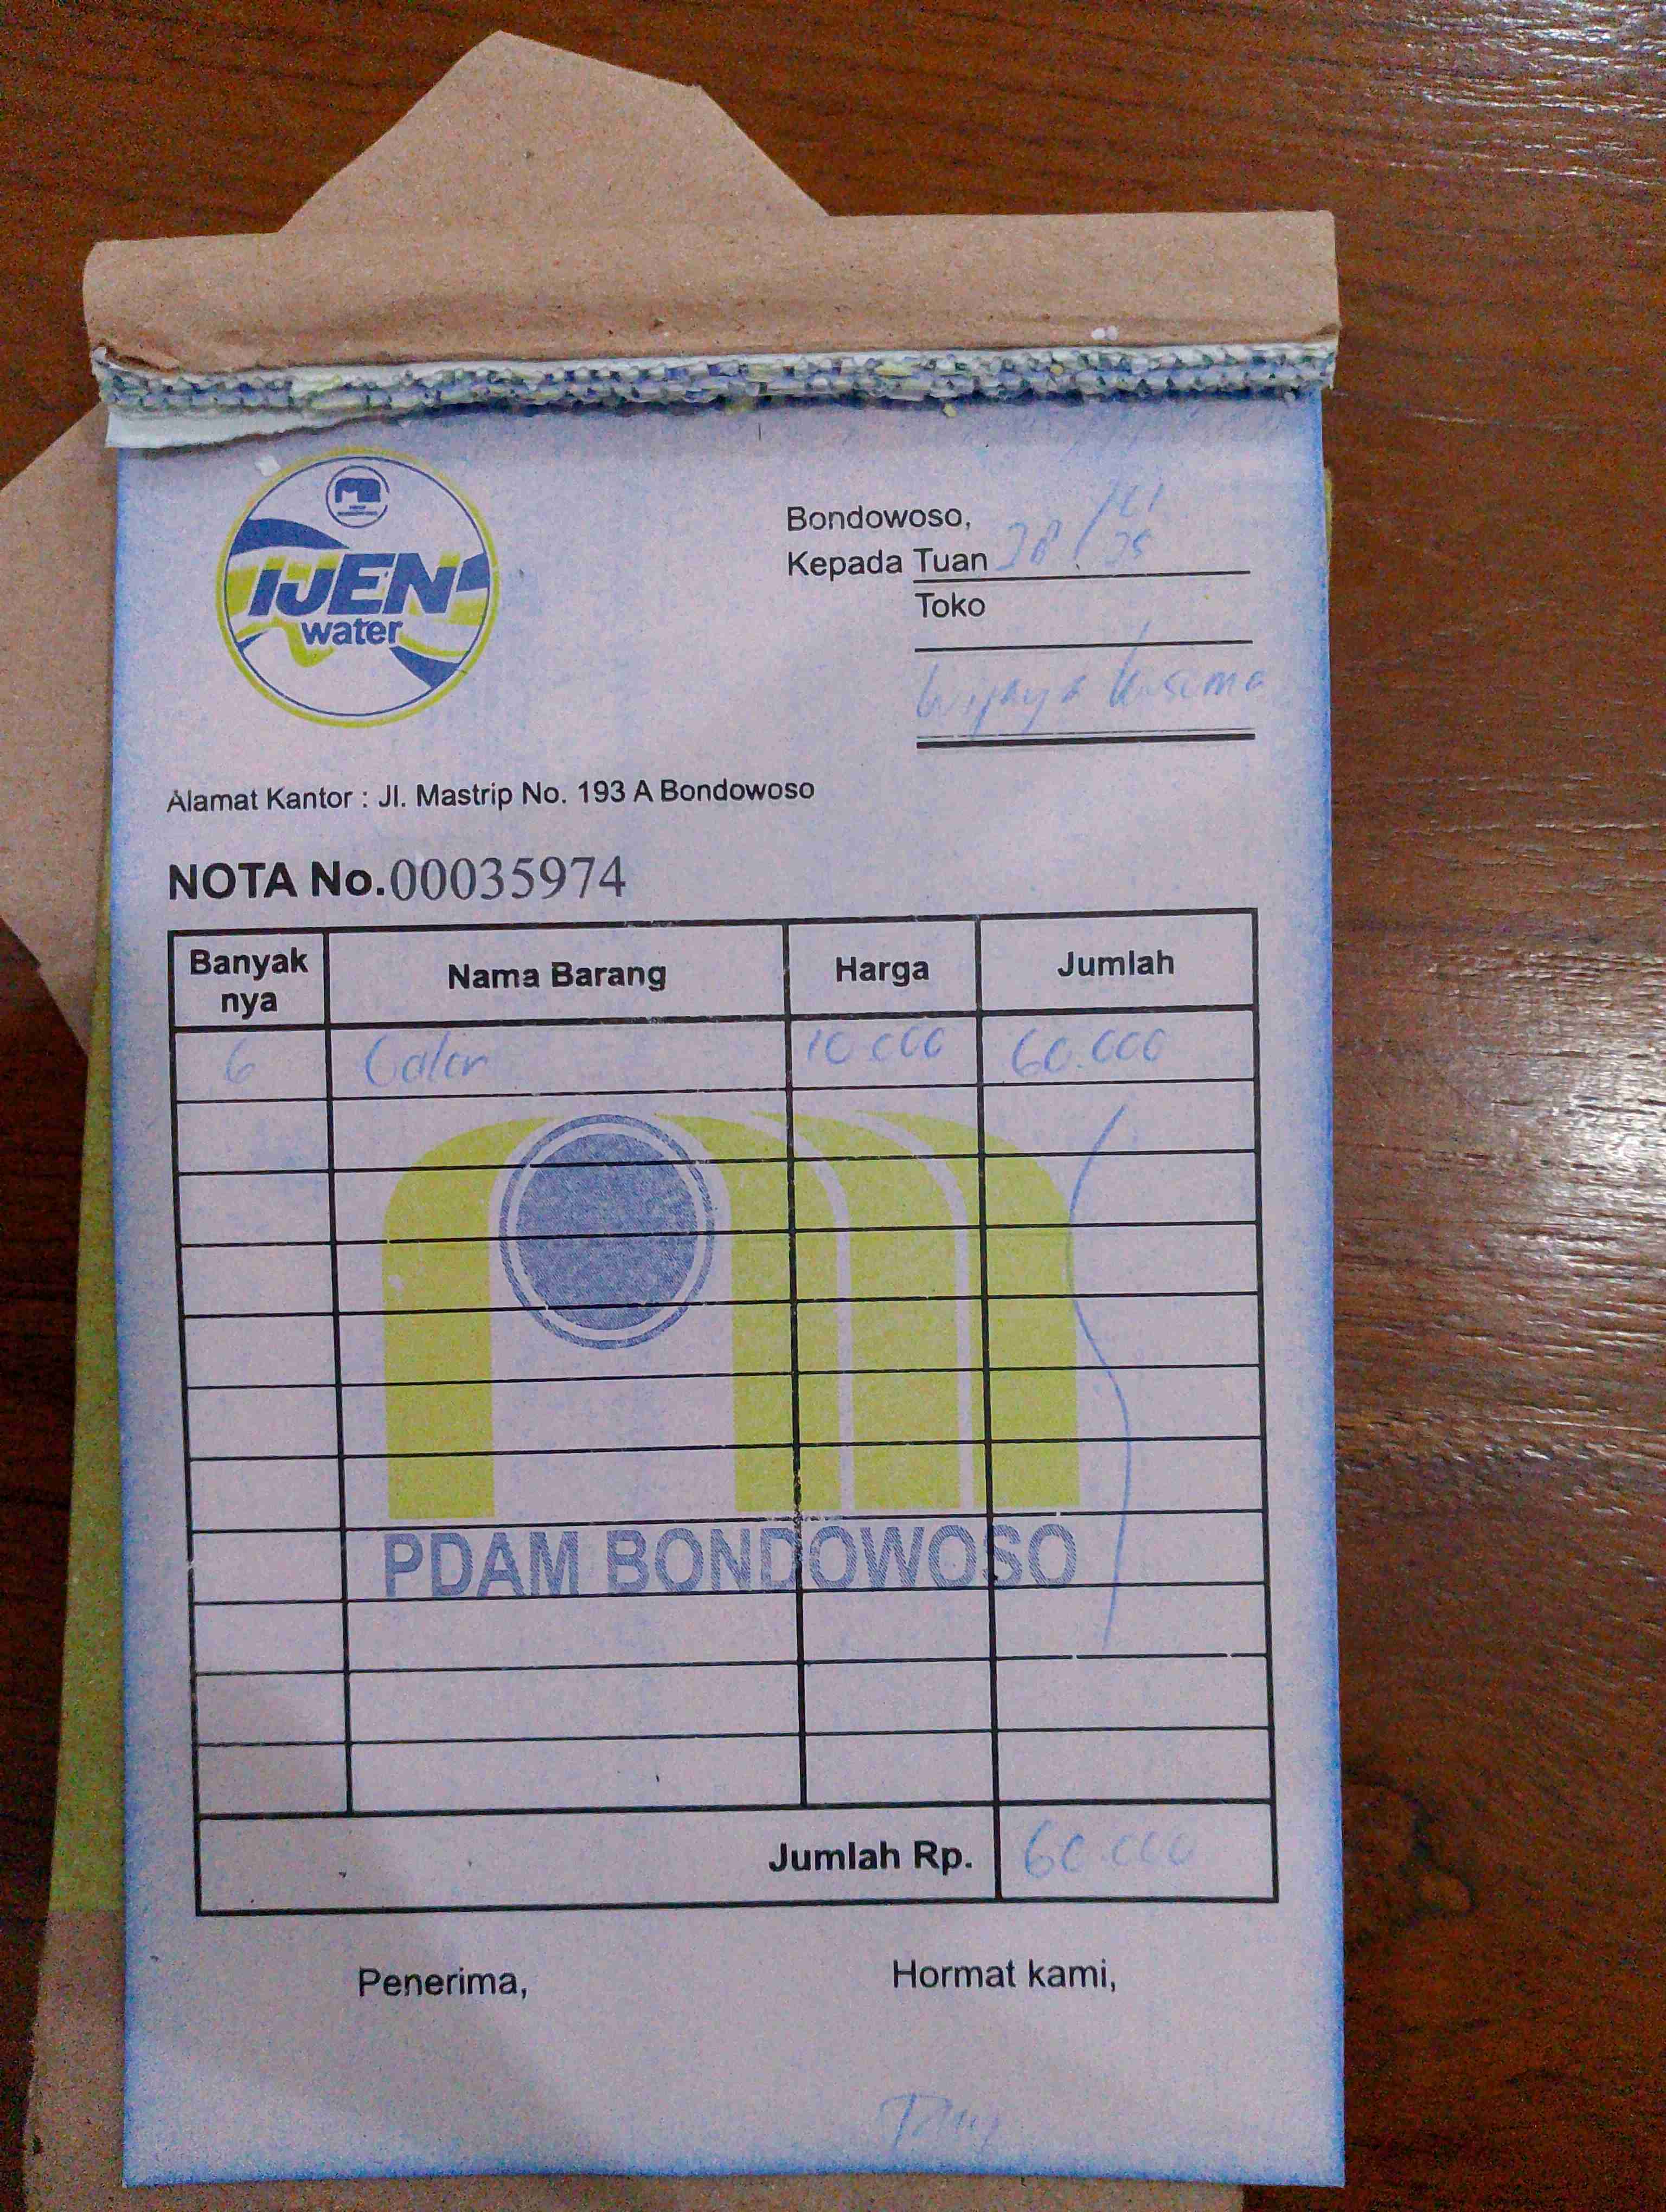 IJEN
water
Bondowoso,
Kepada Tuan 28/
Toko
Wijaya Kusuma
Alamat Kantor : Jl. Mastrip No. 193 A Bondowoso
NOTA No.00035974
Banyak nya Nama Barang Harga Jumlah
6 Galon 10.000 60.000
PDAM BONDOWOSO
Jumlah Rp. 60.000
Penerima, Hormat kami,